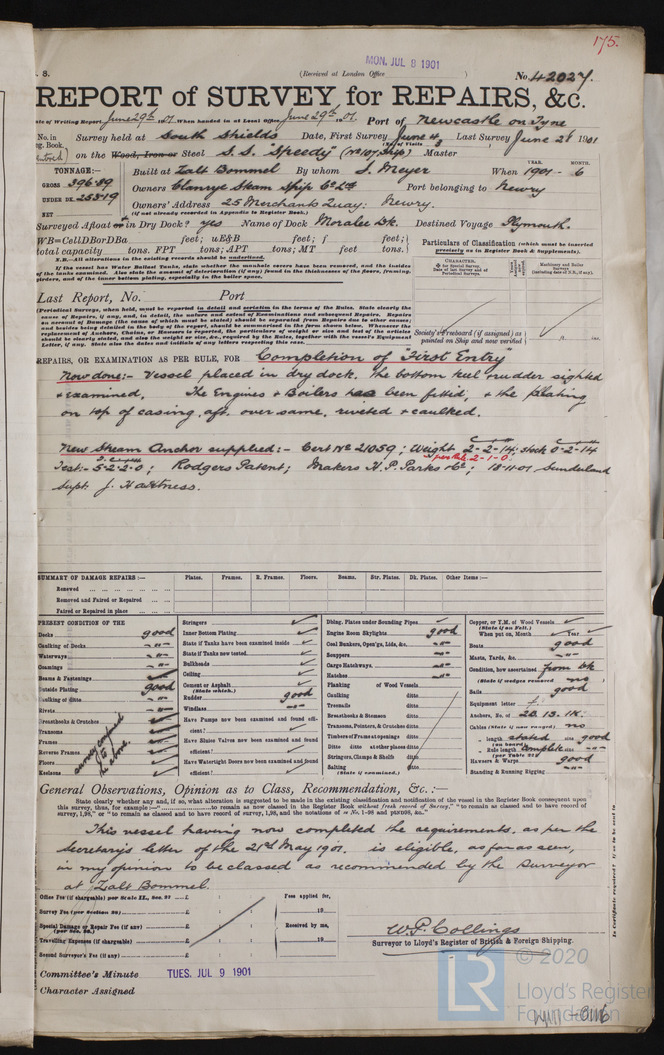 175.
MON. JUL 8 1901
(Received at London Office )
No. 42027.
REPORT of SURVEY for REPAIRS, &c.
Date of Writing Report June 29th 1901 When handed in at Local Office June 29th 01. Port of Newcastle on Tyne
No. in Survey held at South Shields Date, First Survey June 4, Last Survey June 28 1901
on the Wood, Iron or Steel S.S. "Speedy" (No 107 Ship) Master
TONNAGE:—
GROSS 396.89
UNDER DK. 253.19
NET
Built at Zalt Bommel By whom J. Meyer When 1901 - 6
YEAR. MONTH.
Owners Clanrye Steam Ship Co Ltd Port belonging to Newry
Owners' Address 25 Merchants Quay: Newry.
(if not already recorded in Appendix to Register Book.)
Surveyed Afloat or in Dry Dock? yes Name of Dock Moralee Dk. Destined Voyage Plymouth.
WB=CellDBorDBa feet; uE&B feet; f feet;
total capacity tons. FPT tons; APT tons; MT feet tons.
N.B.—All alterations in the existing records should be underlined.
If the vessel has Water Ballast Tanks, state whether the manhole covers have been removed, and the insides
of the tanks examined. Also state the amount of deterioration (if any) found in the thicknesses of the floors, framing,
girders, and of the inner bottom plating, especially in the boiler space.
Particulars of Classification (which must be inserted
precisely as in Register Book & Supplements).
CHARACTER.
Machinery and Boiler Surveys
Last Report, No. Port
(Periodical Surveys, when held, must be reported in detail and seriatim in the terms of the Rules. State clearly the
cause of Repairs, if any, and, in detail, the nature and extent of Examinations and subsequent Repairs. Repairs
on account of Damage (the cause of which must be stated) should be separated from Repairs due to other causes;
and besides being detailed in the body of the report, should be summarized in the form shewn below. Whenever the
replacement of Anchors, Chains, or Hawsers is reported, the particulars of weight or size and test of the articles
should be clearly stated, and also the weight or size, &c. required by the Rules, together with the vessel's Equipment
Letter, if any. State also the dates and initials of any letters respecting this case.
Society's Freeboard (if assigned) as
painted on Ship and now verified
REPAIRS, OR EXAMINATION AS PER RULE, FOR Completion of "First Entry"
Now done:- Vessel placed in dry dock. The bottom keel rudder sighted
& examined, The Engines & Boilers has been fitted, & the plating
on top of casing, aft. over same, riveted & caulked.
New Stream Anchor supplied:- Cert No 21059; Weight 2-2-14: stock 0-2-14
per Rule 2-1-0
Test:- 5-2-2-0; Rodgers Patent; Makers H.P. Parks &Co; 18-11-01 Sunderland
Supt J. Hartness.
SUMMARY OF DAMAGE REPAIRS:— Plates. Frames. R. Frames. Floors. Beams. Str. Plates. Dk. Plates. Other Items:—
Renewed
Removed and Faired or Repaired
Faired or Repaired in place
PRESENT CONDITION OF THE
Decks good
Caulking of Decks "
Waterways "
Coamings "
Beams & Fastenings
Outside Plating good
Caulking of ditto "
Rivets "
Breasthooks & Crutches
Transoms
Frames
Reverse Frames
Floors
Keelsons
survey confined to the above.
Stringers
Inner Bottom Plating
State if Tanks have been examined inside
State if Tanks now tested
Bulkheads
Ceiling
Cement or Asphalt
(State which.)
Rudder good
Windlass "
Have Pumps now been examined and found efficient?
Have Sluice Valves now been examined and found efficient?
Have Watertight Doors now been examined and found efficient?
Dbling. Plates under Sounding Pipes
Engine Room Skylights good
Coal Bunkers, Open'gs, Lids, &c. "
Scuppers "
Cargo Hatchways "
Hatches "
Planking of Wood Vessels
Caulking ditto
Treenails ditto
Breasthooks & Stemson ditto
Transoms, Pointers, & Crutches ditto
Timbers of Frame at openings ditto
Ditto ditto at other places ditto
Stringers, Clamps & Shelfs ditto
Salting ditto
(State if examined.)
Copper, or Y.M. of Wood Vessels
(State if on Felt.)
When put on, Month Year
Boats good
Masts, Yards, &c. "
Condition, how ascertained from Dk
(State if wedges removed no
Sails good
Equipment letter f
Anchors, No. of 2B. 1S. 1K.
Cables (State if now ranged) no
" length stated size good
(on board)
" Rule length complete size "
(per Table 22)
Hawsers & Warps good
Standing & Running Rigging "
General Observations, Opinion as to Class, Recommendation, &c.:—
State clearly whether any and, if so, what alteration is suggested to be made in the existing classification and notification of the vessel in the Register Book consequent upon
this survey, thus, for example:—" to remain as now classed in the Register Book without fresh record of Survey," "to remain as classed and to have record of
survey, 1,98," or "to remain as classed and to have record of survey, 1,98, and the notations of ss No. 1-98 and PtND98, &c."
This vessel having now completed the requirements, as per the
Secretary's letter of the 21st May 1901. is eligible, as far as seen,
in my opinion to be classed as recommended by the Surveyor
at Zalt Bommel.
Office Fee (if chargeable) per Scale II., Sec. 27 £
Survey Fee (per Section 29) £
Special Damage or Repair Fee (if any) £
(per Sec. 28.)
Travelling Expenses (if chargeable) £
Second Surveyor's Fee (if any) £
Fees applied for,
18
Received by me,
19
W.P. Collings
Surveyor to Lloyd's Register of British & Foreign Shipping.
Committee's Minute TUES. JUL 9 1901
Character Assigned
© 2020
LR
Lloyd's Register
Foundation